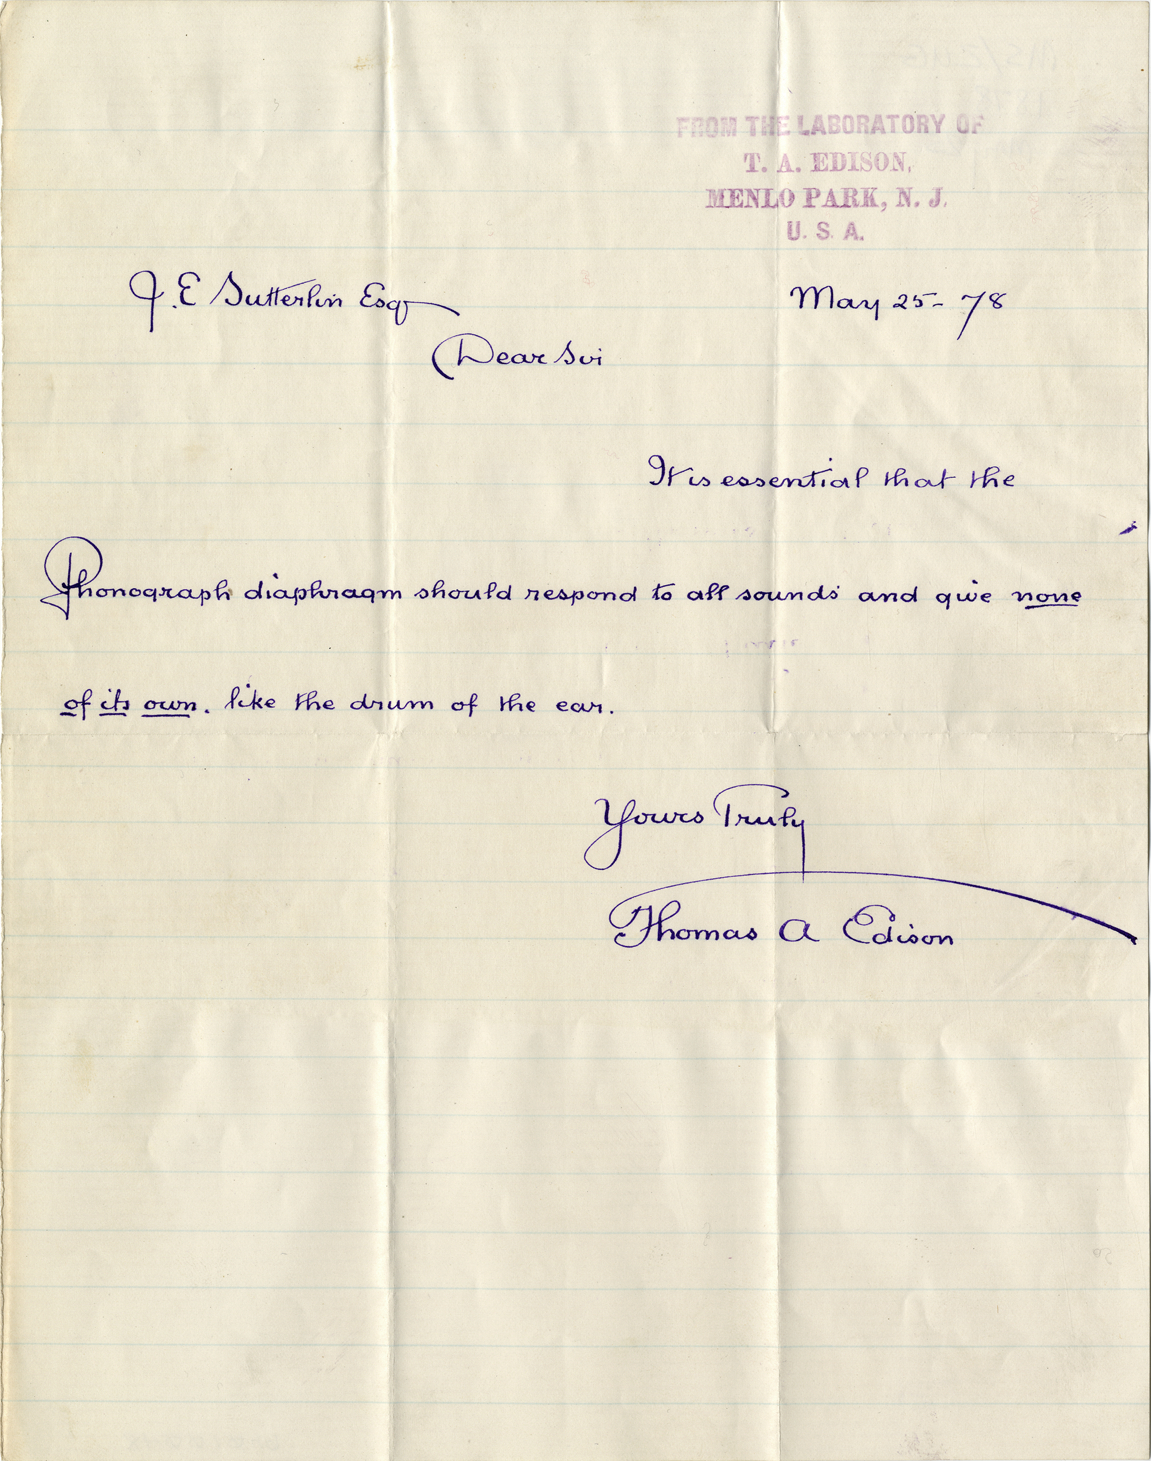 FROM THE LABORATORY OF
T. A. EDISON,
MENLO PARK, N. J.
U. S. A.
J. E Sutterlin Esq
May 25- 78
Dear Sir
It is essential that the
Phonograph diaphragm should respond to all sounds and give none
of its own. like the drum of the ear.
Yours Truly
Thomas A Edison